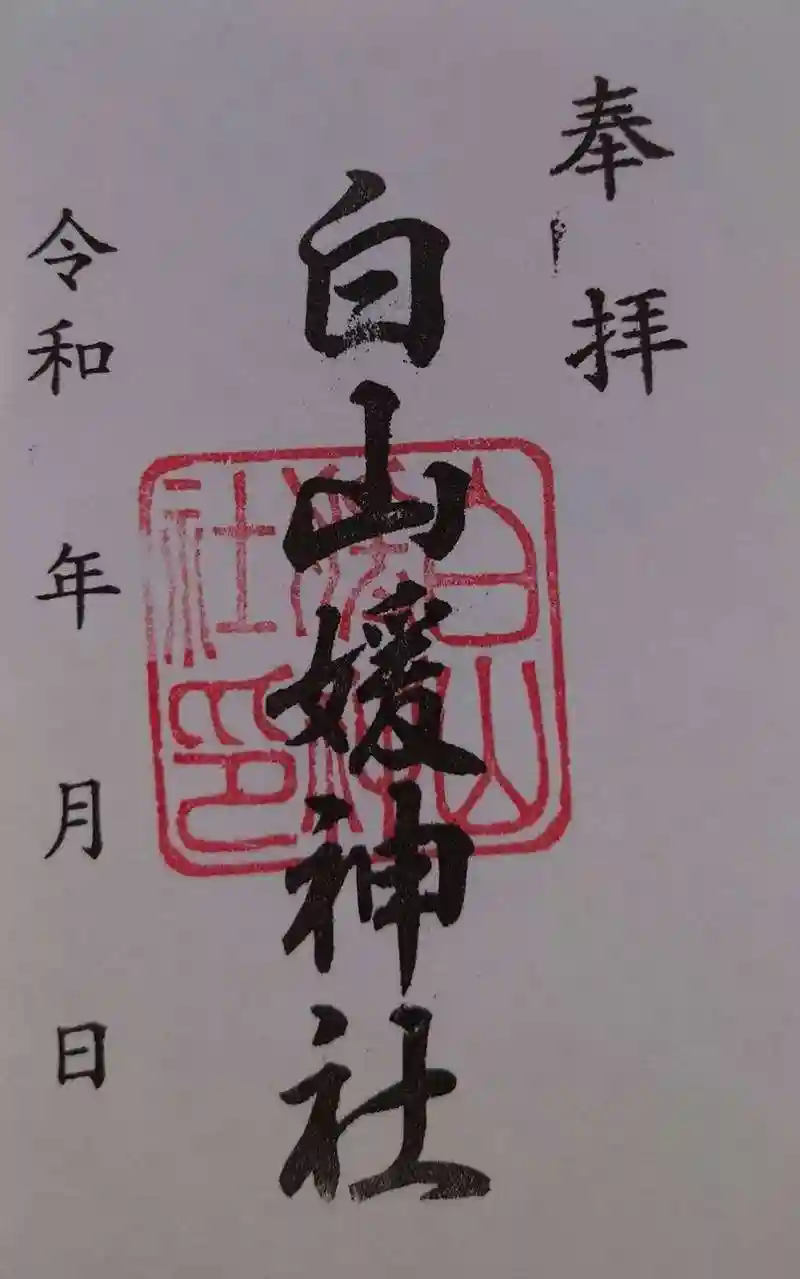 奉拝
白山媛神社
令和 年 月 日
白山
媛神
社印